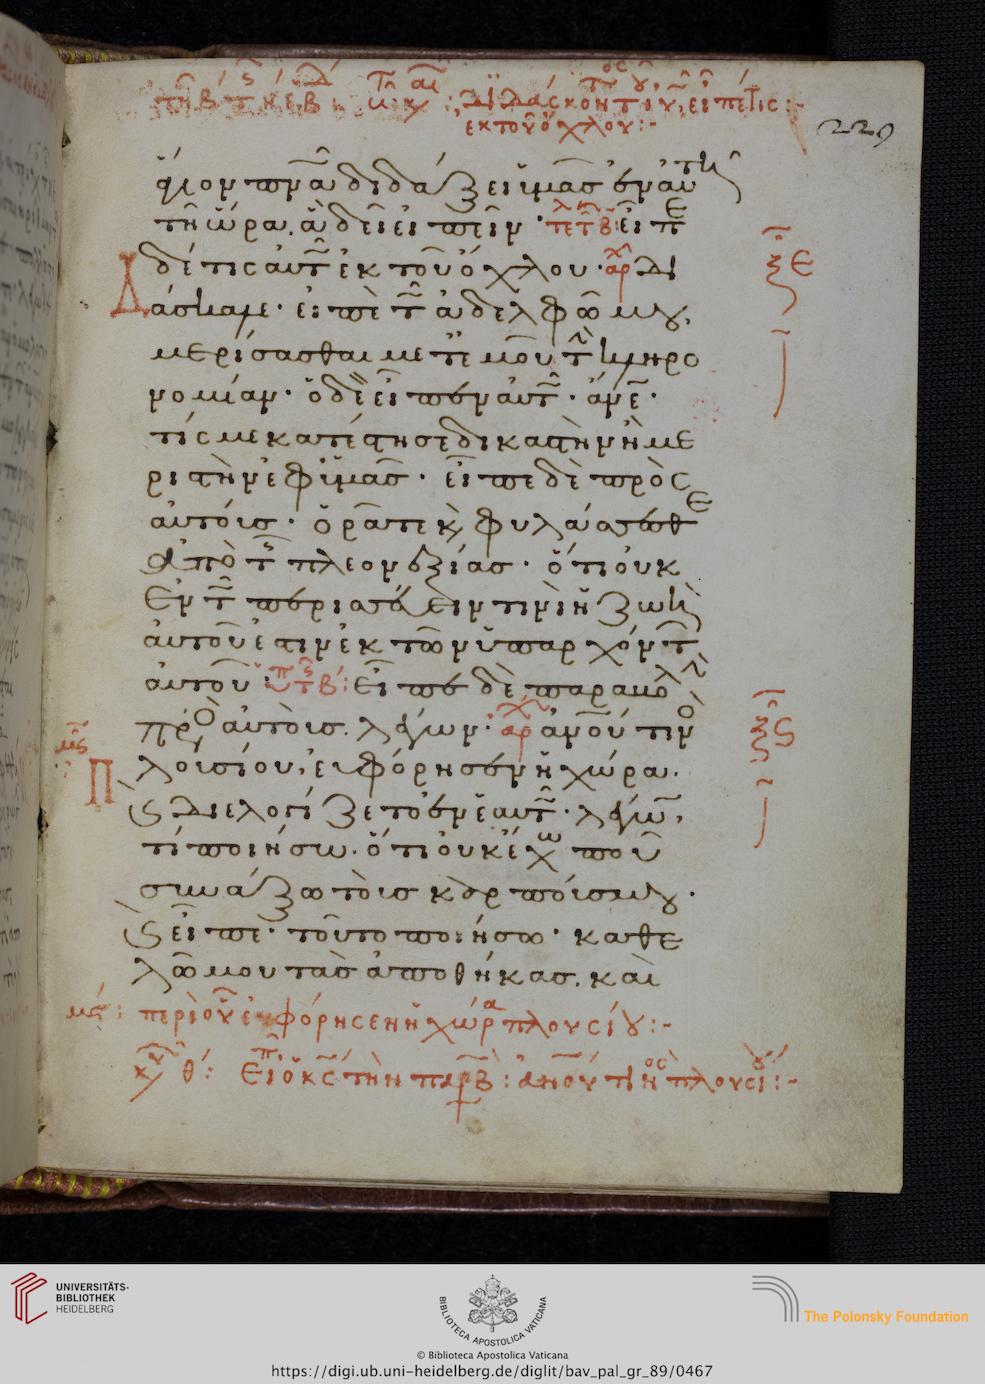 διδάσκοντος εἶπέ τις
ἐκ τοῦ ὄχλου:-
229
ἅγιον πνα διδάξει ὑμᾶς ἐν αὐτῆ
τῆ ὥρα, ἃ δεῖ εἰπεῖν · εἶπε
δέ τις αὐτῶ ἐκ τοῦ ὄχλου · Δι
δάσκαλε · εἰπὲ τῶ ἀδελφῶ μου,
μερίσασθαι μετ' ἐμοῦ τὴν κληρο
νομίαν · ὁ δὲ εἶπεν αὐτῶ · ἄνε ·
τίς με κατέστησε δικαστὴν ἢ με
ριστὴν ἐφ' ὑμᾶς · εἶπε δὲ πρὸς
αὐτοὺς · ὁρᾶτε καὶ φυλάσσεσθε
ἀπὸ τῆς πλεονεξίας · ὅτι οὐκ
ἐν τῶ περισσεύειν τινὶ ἡ ζωὴ
αὐτοῦ ἐστιν ἐκ τῶν ὑπαρχόντων
αὐτοῦ · εἶπε δὲ παραβολὴν
πρὸς αὐτοὺς λέγων · ἀνου τινὸς
πλουσίου, εὐφόρησεν ἡ χώρα ·
καὶ διελογίζετο ἐν ἑαυτῶ · λέγων,
τί ποιήσω · ὅτι οὐκ ἔχω ποῦ
συνάξω τοὺς καρπούς μου ·
καὶ εἶπε · τοῦτο ποιήσω · καθε
λῶ μου τὰς ἀποθήκας, καὶ
ξε
ξς
Π
περὶ οὗ εὐφόρησεν ἡ χώρα πλουσίου:-
θ: Εἶπεν ὁ κς τὴν παρβ: ἀνου τινος πλουσίου:-
UNIVERSITÄTS-
BIBLIOTHEK
HEIDELBERG
BIBLIOTECA APOSTOLICA VATICANA
The Polonsky Foundation
© Biblioteca Apostolica Vaticana
https://digi.ub.uni-heidelberg.de/diglit/bav_pal_gr_89/0467